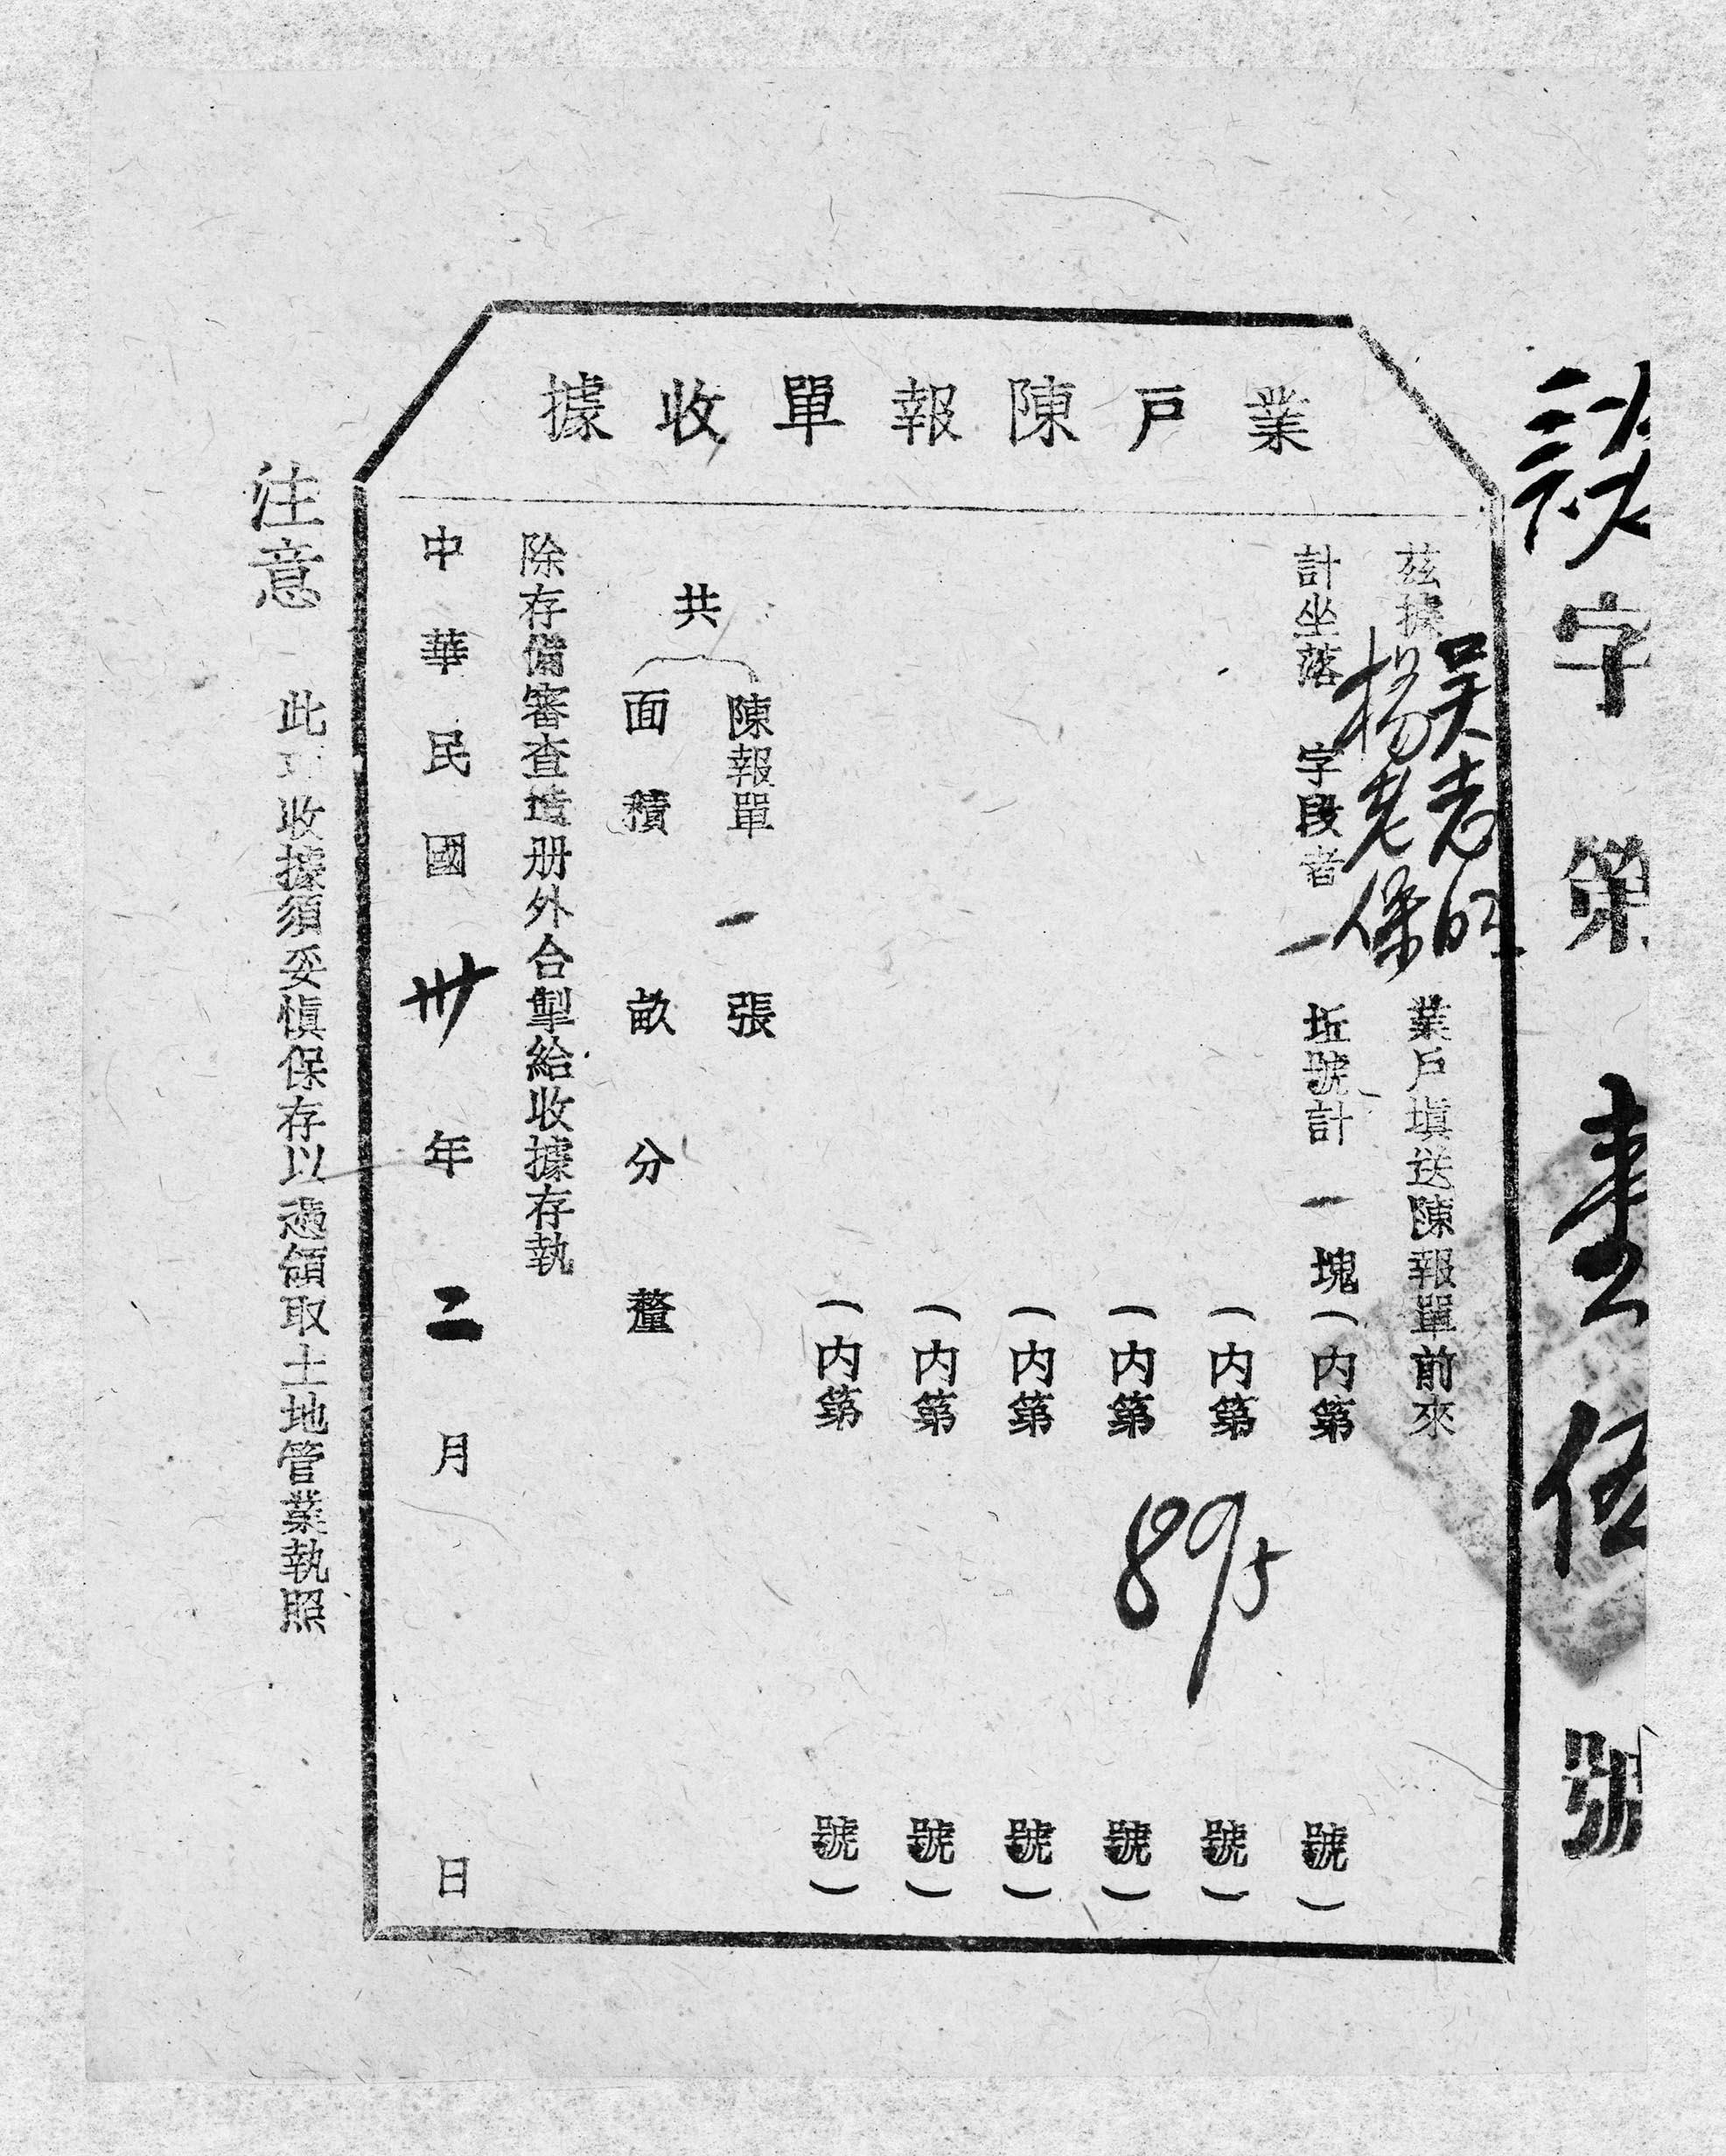 字第 伍 號
業戶陳報單收據
茲據 吴老 楊老保 業戶填送陳報單前來
計坐落 字段者 一 坵號計 一 塊(內第 號)
(內第 895 號)
(內第 號)
(內第 號)
(內第 號)
(內第 號)
共 陳報單 一 張
面積 畝 分 釐
除存備審查造册外合掣給收據存執
中華民國 卅 年 二 月 日
注意 此 收據須妥慎保存以憑領取土地管業執照